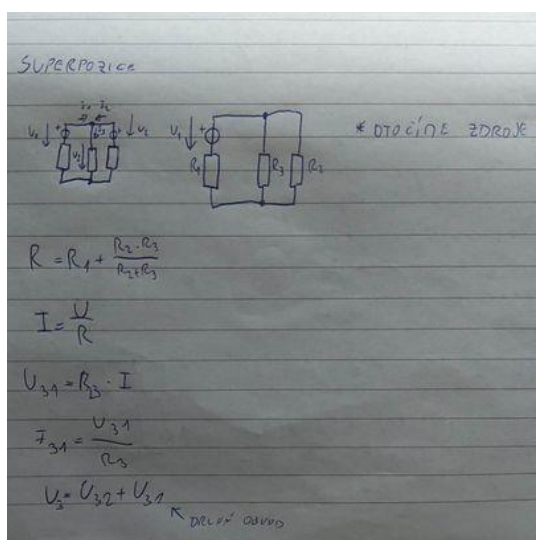 SUPERPOZICE
U₁ R₁ R₃ R₂
* OTOČÍME ZDROJE
R = R₁ + \frac{R₂·R₃}{R₂+R₃}
I = \frac{U}{R}
U₃₁ = R₂₃ · I
I₃₁ = \frac{U₃₁}{R₃}
U₃ = U₃₂ + U₃₁
OBVOD